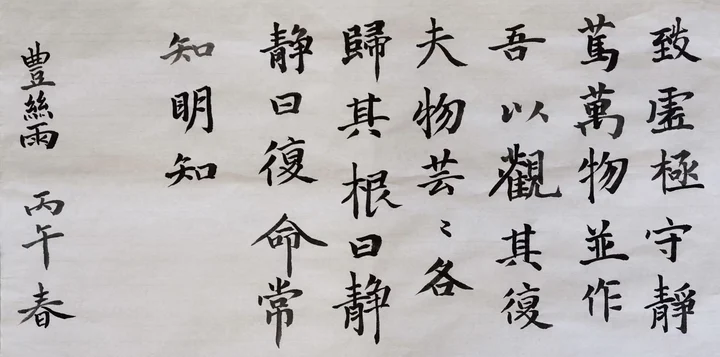 致虛極守靜
篤萬物並作
吾以觀其復
夫物芸〻各
歸其根曰静
静曰復命常
知明知
豊絲雨 丙午春